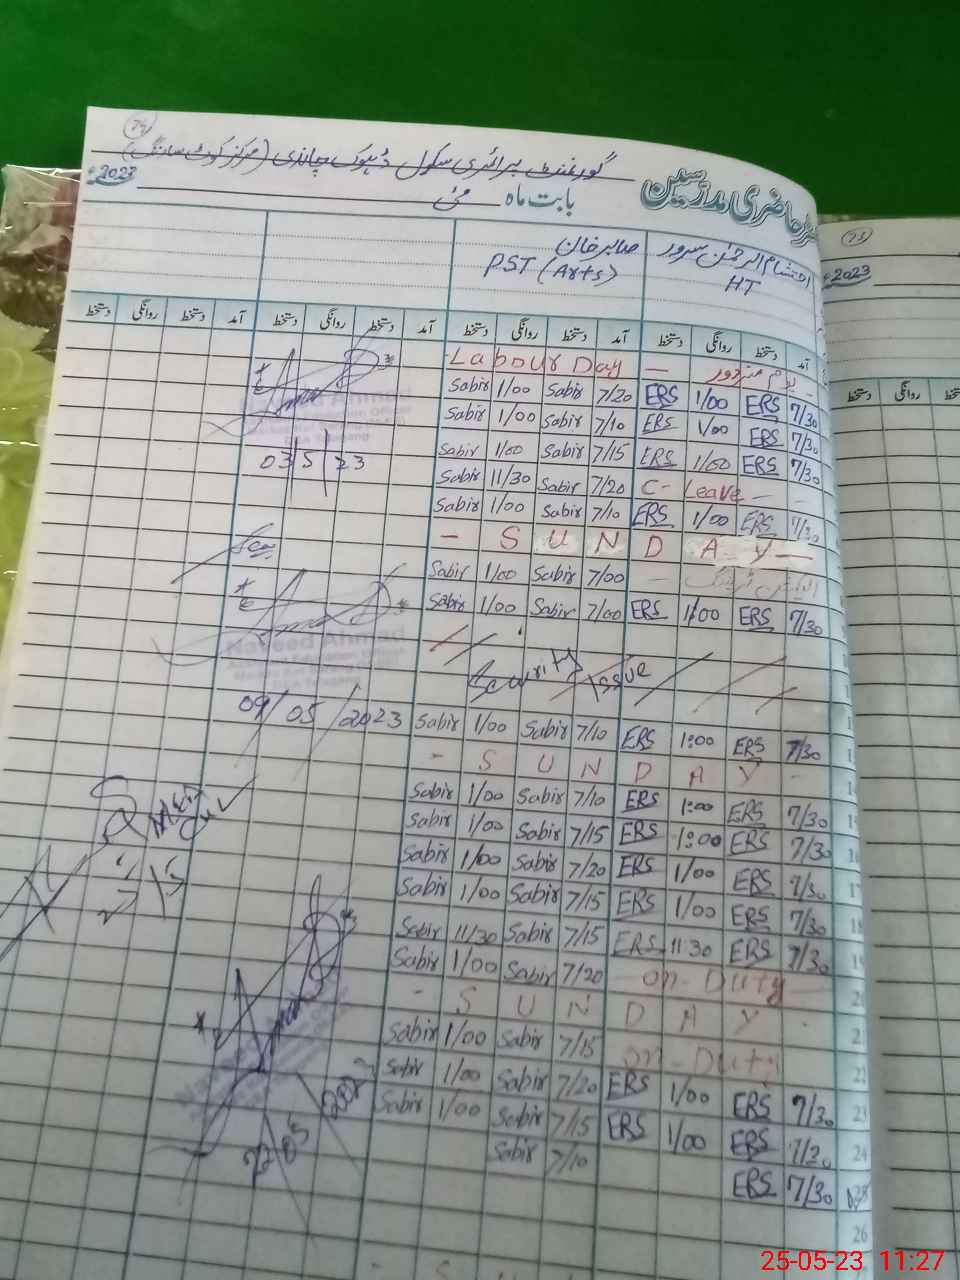 74
گورنمنٹ پرائمری سکول ڈہوک چاندی (مرکز کوٹ سارنگ)
حاضری مدرسین
بابت ماہ مئی 2023
احتشام الرحمٰن سرور صابر خان
HT PST (Arts)
آمد دستخط روانگی دستخط آمد دستخط روانگی دستخط آمد دستخط روانگی دستخط آمد دستخط روانگی دستخط
Labour Day — یوم مزدور
Sabir 1/00 Sabir 7/20 ERS 1/00 ERS 7/30
Sabir 1/00 Sabir 7/10 ERS 1/00 ERS 7/30
Sabir 1/00 Sabir 7/15 ERS 1/00 ERS 7/30
Sabir 11/30 Sabir 7/20 C- Leave
Sabir 1/00 Sabir 7/10 ERS 1/00 ERS 7/30
- S U N D A Y -
Sabir 1/00 Sabir 7/00
Sabir 1/00 Sabir 7/00 ERS 1/00 ERS 7/30
Security Issue
Sabir 1/00 Sabir 7/10 ERS 1:00 ERS 7/30
- S U N D A Y -
Sabir 1/00 Sabir 7/10 ERS 1:00 ERS 7/30
Sabir 1/00 Sabir 7/15 ERS 1:00 ERS 7/30
Sabir 1/00 Sabir 7/20 ERS 1/00 ERS 7/30
Sabir 1/00 Sabir 7/15 ERS 1/00 ERS 7/30
Sabir 11/30 Sabir 7/15 ERS 11:30 ERS 7/30
Sabir 1/00 Sabir 7/20 on-Duty
- S U N D A Y
Sabir 1/00 Sabir 7/15 on-Duty
Sabir 1/00 Sabir 7/20 ERS 1/00 ERS 7/30
Sabir 1/00 Sabir 7/15 ERS 1/00 ERS 7/30
Sabir 7/10 ERS 7/30
Naveed Ahmad
03/5/23
Seen
Naveed Ahmad
09/05/2023
73
2023
دستخط روانگی
22
23
24
26
25-05-23 11:27